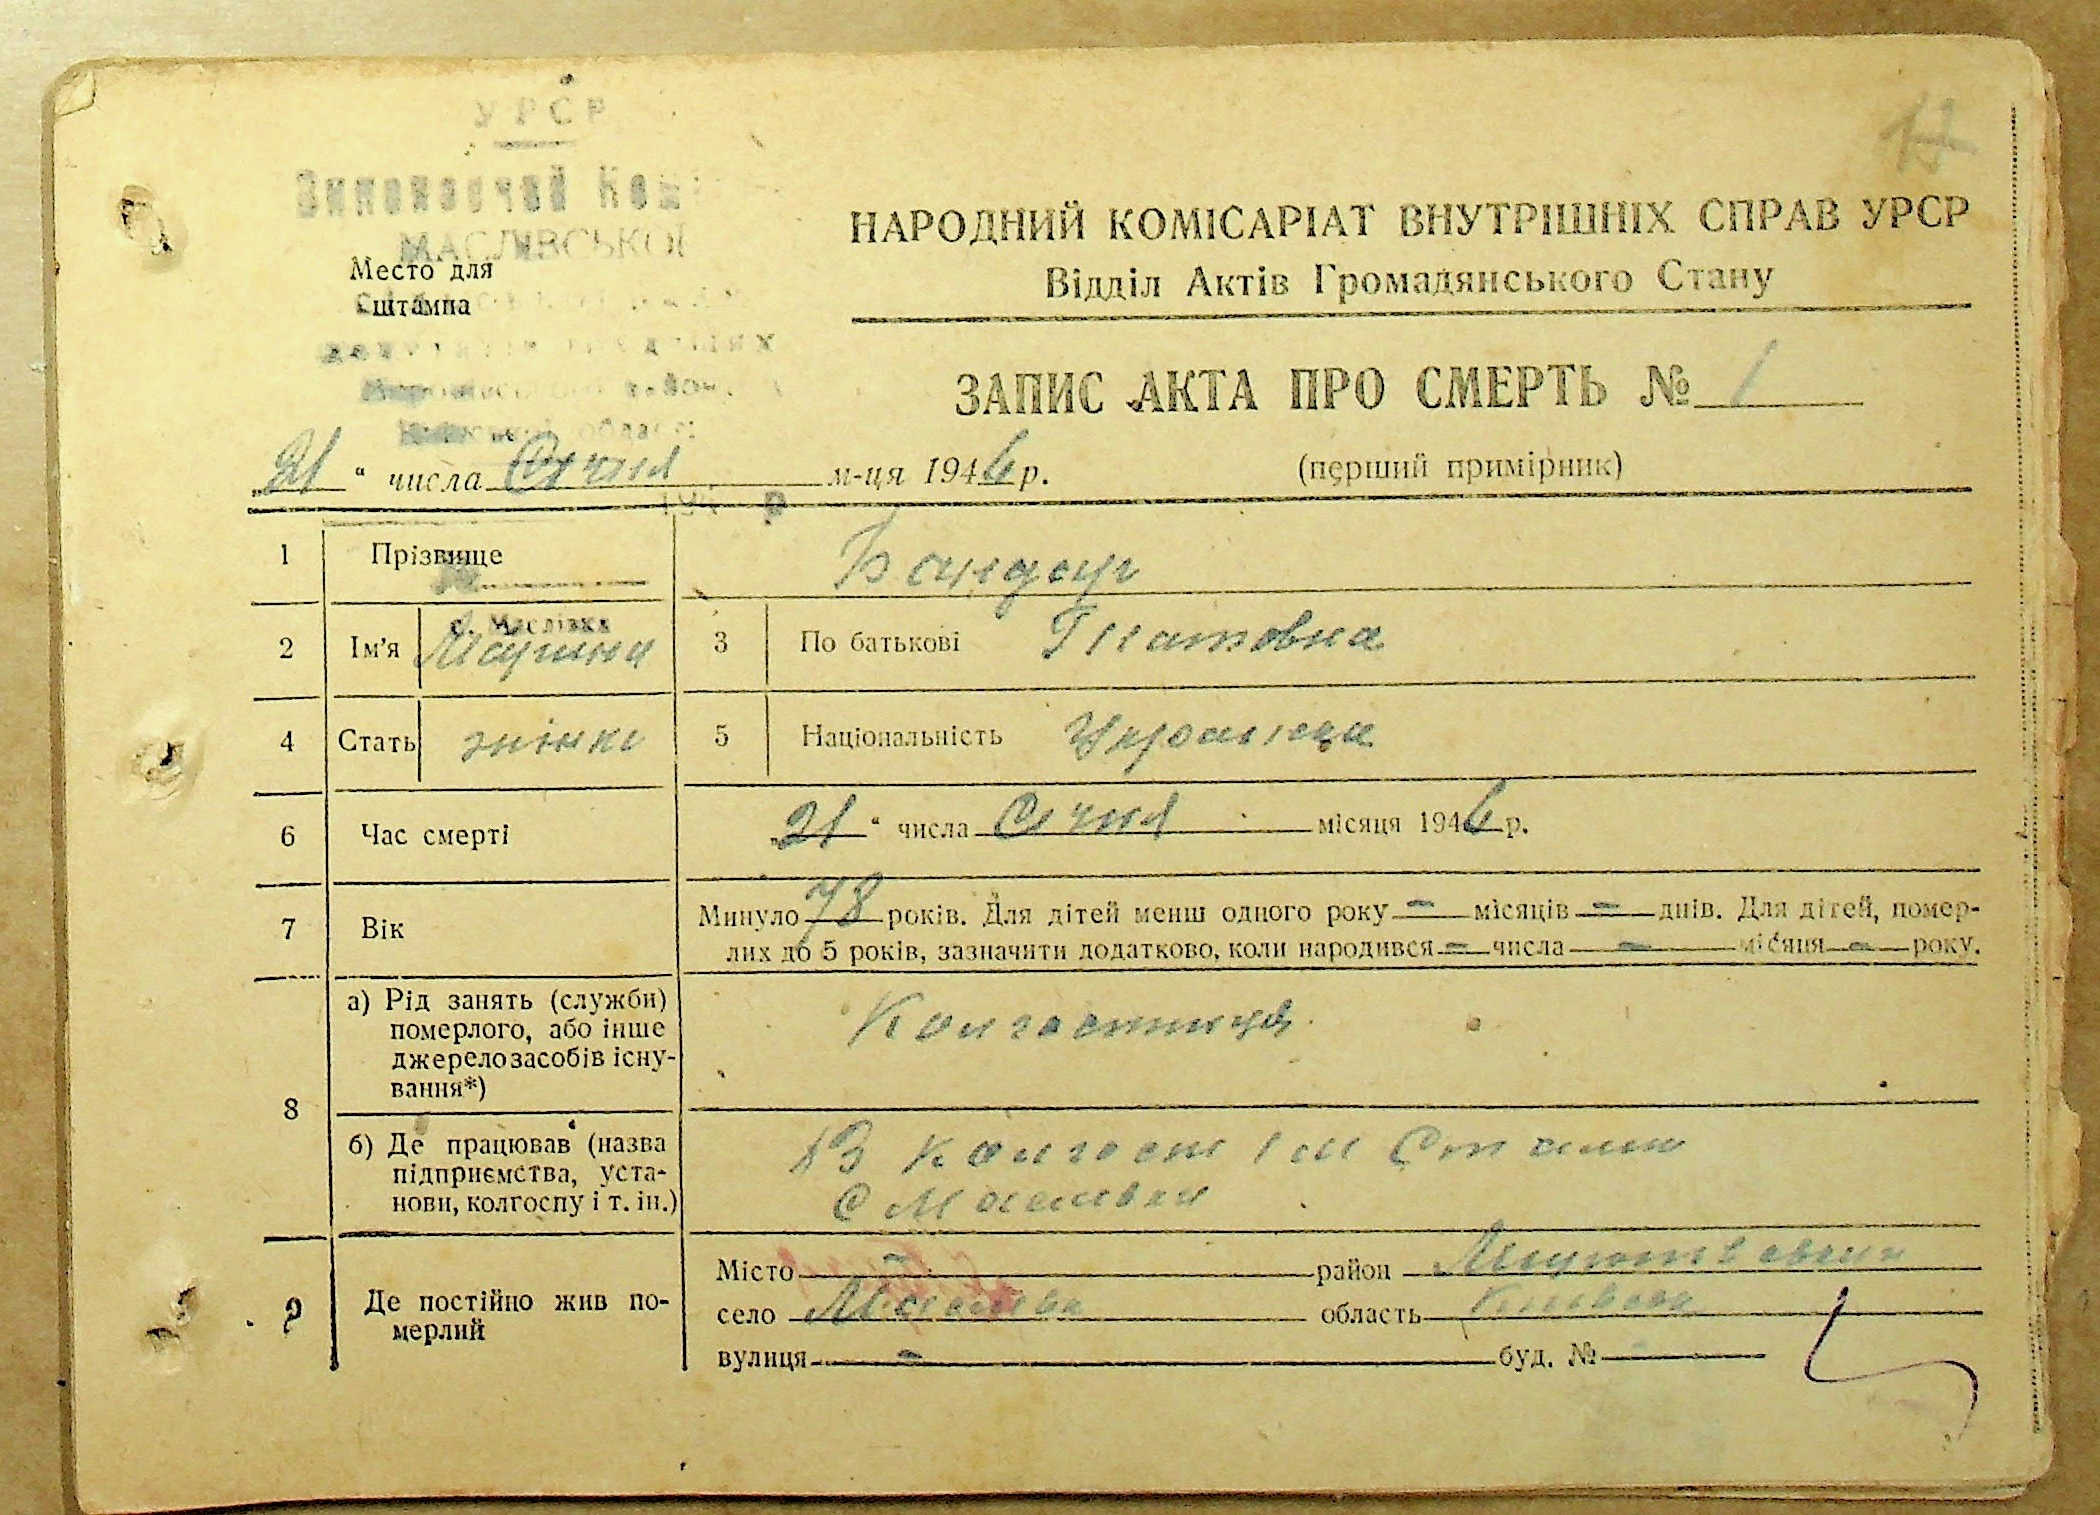 УРСР
Виконавчий Ком
МАСЛІВСЬКОЇ
Место для
штампа
області
17
НАРОДНИЙ КОМІСАРІАТ ВНУТРІШНІХ СПРАВ УРСР
Відділ Актів Громадянського Стану
ЗАПИС АКТА ПРО СМЕРТЬ № 1
„21“ числа Січня м-ця 1946 р.
(перший примірник)
194 р
1 Прізвище Бондар
с. Маслівка
2 Ім'я Марина 3 По батькові Гнатовна
4 Стать жінка 5 Національність Українка
6 Час смерті „21“ числа Січня місяця 1946 р.
7 Вік Минуло 78 років. Для дітей менш одного року – місяців – днів. Для дітей, помер-
лих до 5 років, зазначити додатково, коли народився – числа – місяця – року.
8 а) Рід занять (служби)
померлого, або інше
джерело засобів існу-
вання*)
Колгоспниця
б) Де працював (назва
підприємства, уста-
нови, колгоспу і т. ін.)
В Колгосп ім Сталін
С Маслівки
9 Де постійно жив по-
мерлий
Місто – район
село Маслівка область Київська
вулиця – буд. №